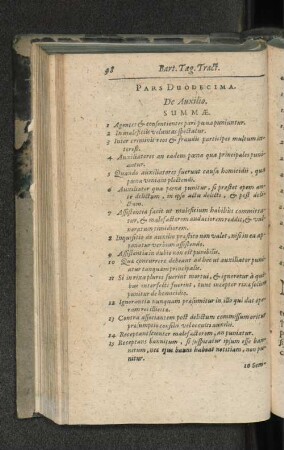 98 Bart. Tag. Tract.
PARS DVODECIMA.
De Auxilio.
SUMMÆ.
1 Agentes & consentientes pari pœna puniuntur.
2 In maleficiis voluntas spectatur.
3 Inter criminis reos & fraudis participes multum interest.
4 Auxiliatores an eadem pœna qua principales puniantur.
5 Quando auxiliatores fuerunt causa homicidii, qua
pœna veniant plectendi.
6 Auxiliator qua pœna punitur, si præstet opem ante
delictum, in ipso actu delicti, & post delictum.
7 Assistentia facit ut maleficium habilius committatur,
& malefactorem audaciorem reddit, &
8 Inquisitio de auxilio præstito non valet, nisi in ea aponatur
verbum assistendo.
9 Assistentia in dubio non est punibilis.
10 Quæ concurrere debeant ad hoc ut auxiliator puniatur
tanquam principalis.
11 Si in rixa plures fuerint mortui, & ignoretur à quibus
interfecti fuerint, tunc inceptor rixæ solet
puniri de homicidio.
12 Ignorantia nunquam præsumitur in illis qui dat operam
rei illicitæ.
13 Contra associantem post delictum commissum oritur
præsumptio consilii vel occulti auxilii.
14 Receptans scienter malefactorem, an puniatur.
15 Receptans bannitum, si justificatur ipsum esse bannitum,
nec ejus banni habuit notitiam, non punitur.